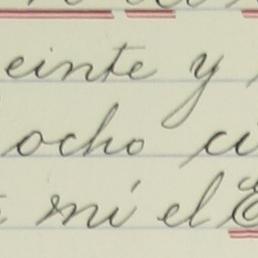 einte y
ocho ci
mí el E